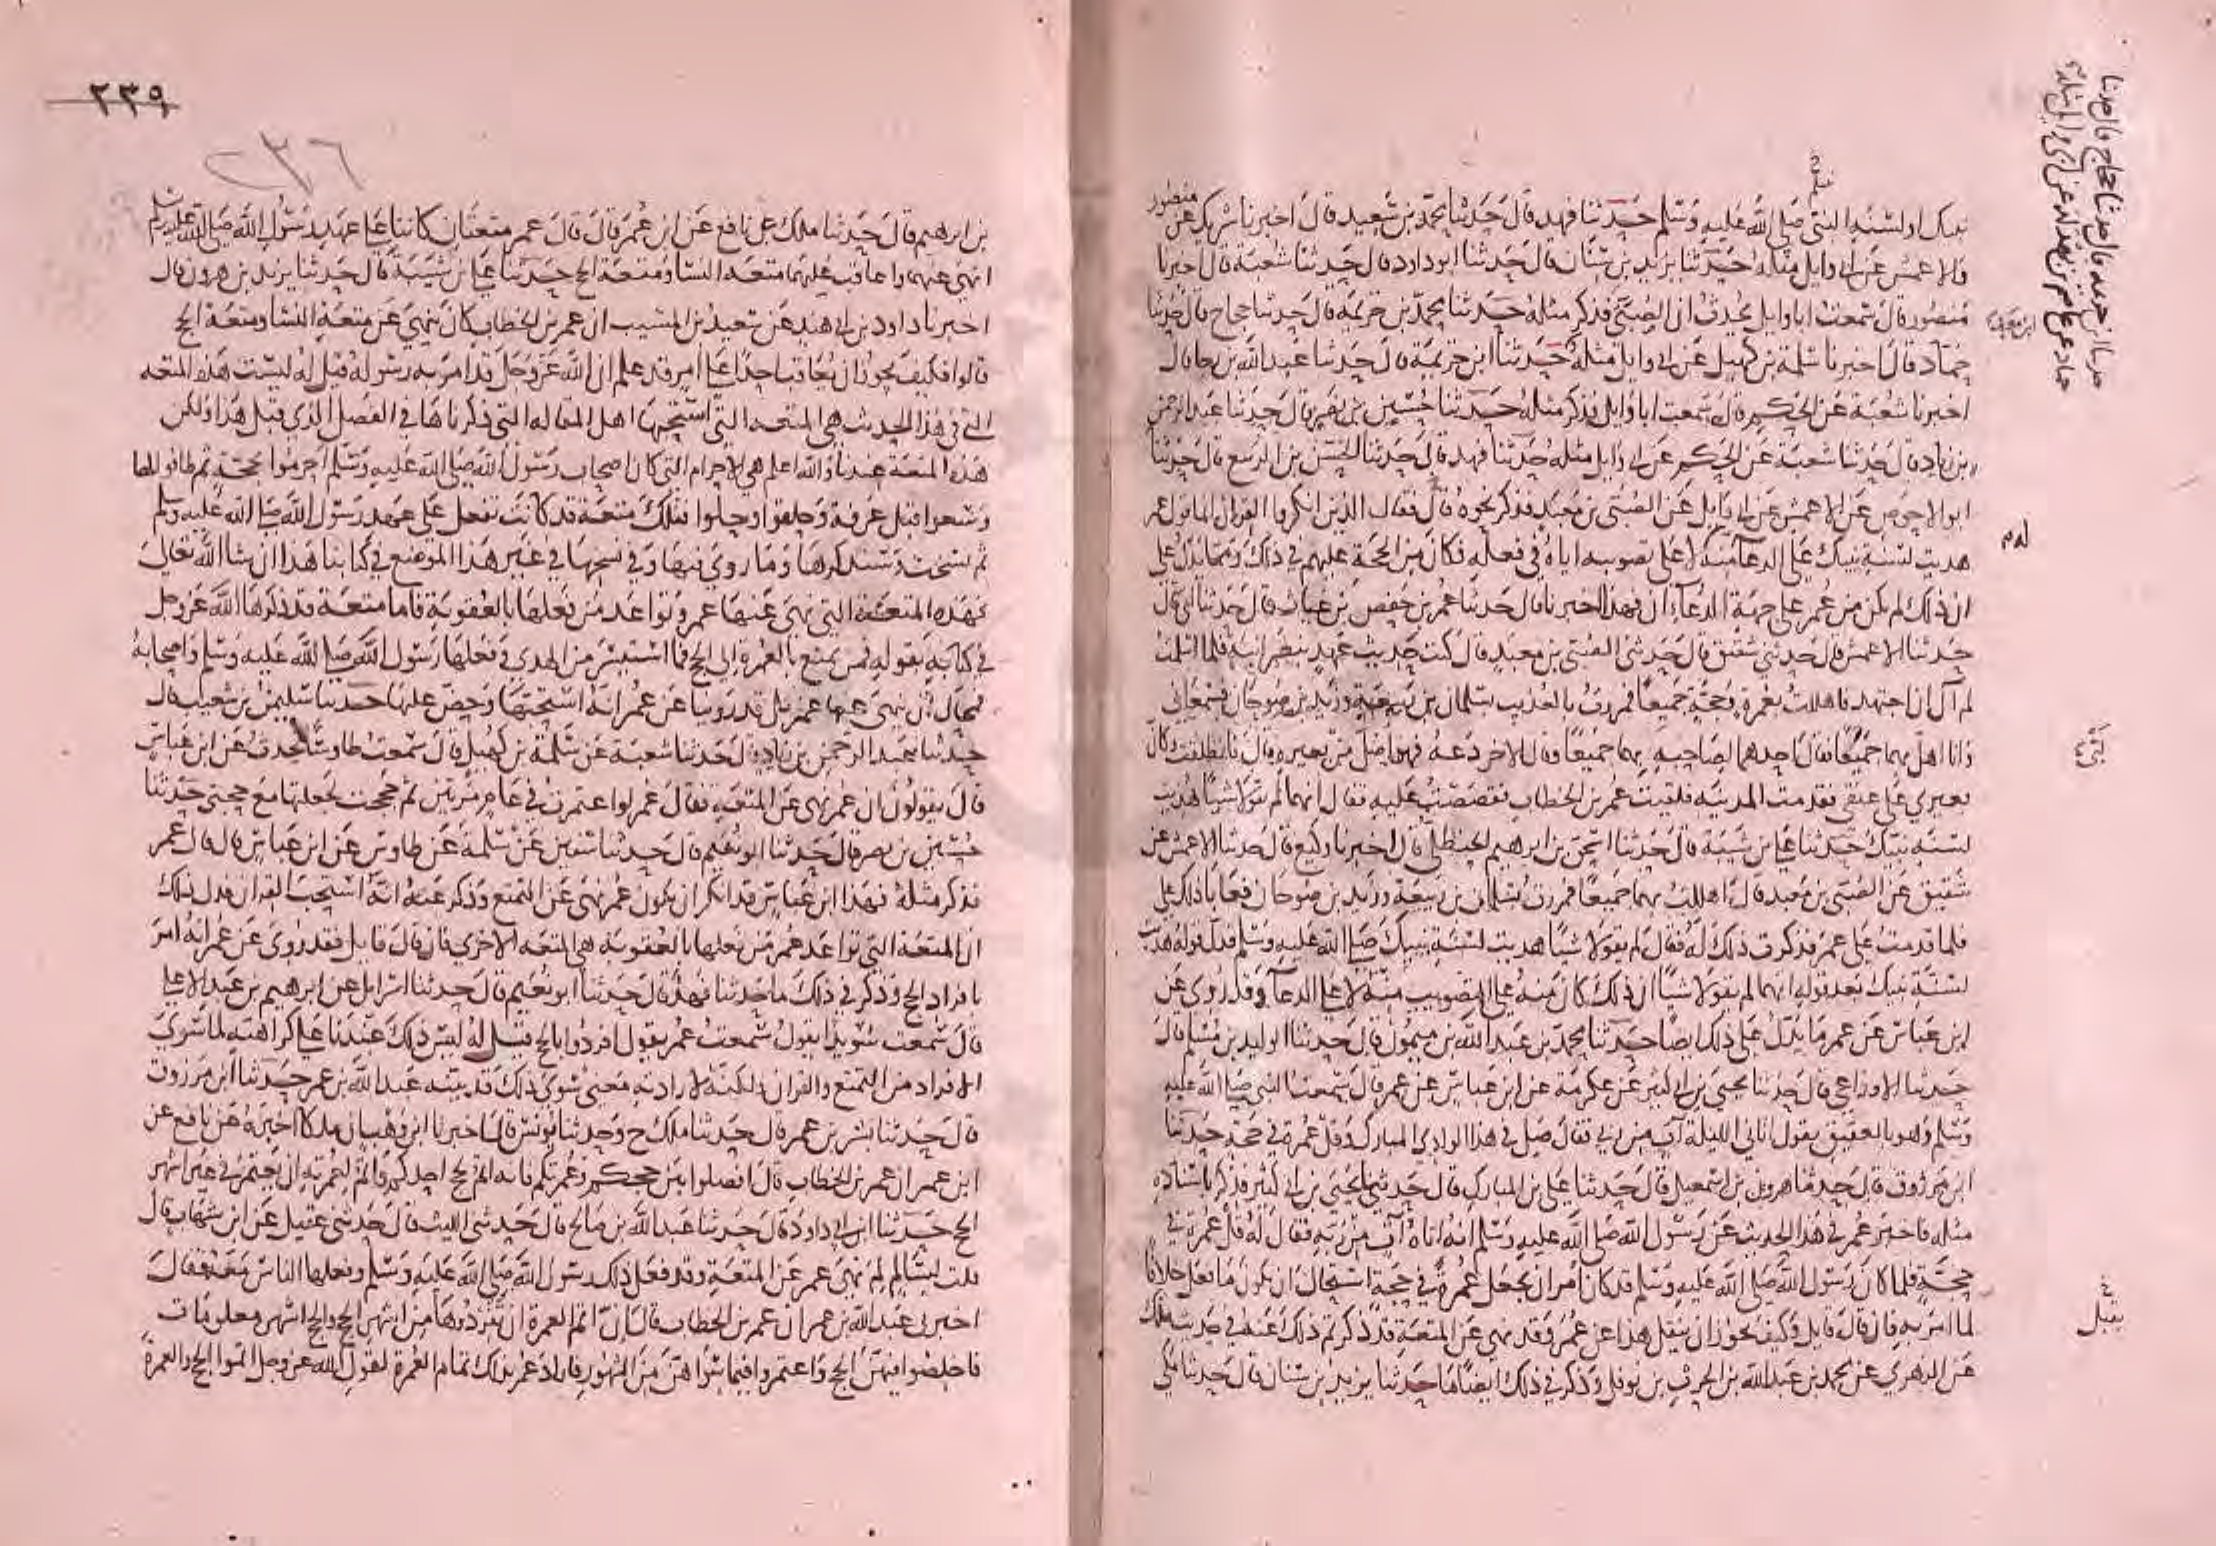 نبيك او لسنة النبي صلى الله عليه وسلم حدثنا فهد قال حدثنا محمد بن سعيد قال اخبرنا شريك عن منصور
والاعمش عن ابي وايل مثله حدثنا يزيد بن سنان قال حدثنا ابو داود قال حدثنا شعبة قال اخبرنا
منصور قال سمعت ابا وايل يحدث ان الصبي فذكر مثله حدثنا محمد بن خزيمة قال حدثنا حجاج قال حدثنا
حماد قال اخبرنا سلمة بن كهيل عن ابي وايل مثله حدثنا ابن خزيمة قال حدثنا عبد الله بن رجا قال
اخبرنا شعبة عن الحكم قال سمعت ابا وايل فذكر مثله حدثنا حسين بن نصر قال حدثنا عبد الرحمن
بن زياد قال حدثنا شعبة عن الحكم عن ابي وايل مثله حدثنا فهد قال حدثنا الحسن بن الربيع قال حدثنا
ابو الاحوص عن الاعمش عن ابي وايل عن الصبي بن معبد فذكر نحوه قال فقال الذين انكروا القران انما قول عمر
هديت لسنة نبيك على الدعا منه لا على تصويبه اياه في فعله فكان من الحجة عليهم في ذلك ومما يدل على
ان ذلك لم يكن من عمر على جهة الدعاء ان فهدا اخبرنا قال حدثنا عمر بن حفص بن غياث قال حدثنا ابي قال
حدثنا الاعمش قال حدثني شقيق قال حدثني الصبي بن معبد قال كنت حديث عهد بنصرانية فلما اسلمت
لم آل ان اجتهد فاهللت بعمرة وحجة جميعا فمررت بالعذيب بسلمان بن ربيعة وزيد بن صوحان فسمعاني
وانا اهل بهما جميعا فقال احدهما لصاحبه بهما جميعا وقال الاخر دعه فهو اضل من بعيره قال فانطلقت وكان
بعيري على عنقي فقدمت المدينه فلقيت عمر بن الخطاب فقصصت عليه فقال انهما لم يقولا شيا هديت
لسنة نبيك حدثنا علي بن شيبة قال حدثنا اسحق بن ابرهيم الحنظلي قال اخبرنا وكيع قال حدثنا الاعمش عن
شقيق عن الصبي بن معبد قال اهللت بهما جميعا فمررت بسلمان بن ربيعة وزيد بن صوحان فعابا ذلك علي
فلما قدمت على عمر فذكرت ذلك له فقال لم يقولا شيا هديت لسنة نبيك صلى الله عليه وسلم فدل قوله هديت
لسنة نبيك بعد قوله انهما لم يقولا شيا ان ذلك كان منه على التصويب منه لا على الدعاء وقد روي عن
ابن عباس عن عمر ما يدل على ذلك ايضا حدثنا محمد بن عبد الله بن ميمون قال حدثنا الوليد بن مسلم قال
حدثنا الاوزاعي قال حدثنا يحيى بن ابي كثير عن عكرمة عن ابن عباس عن عمر قال سمعت النبي صلى الله عليه
وسلم وهو بالعقيق يقول اتاني الليلة آت من ربي فقال صل في هذا الوادي المبارك وقل عمرة في حجة حدثنا
ابن مرزوق قال حدثنا هرون بن اسمعيل قال حدثنا علي بن المبارك قال حدثنا يحيى بن ابي كثير فذكر باسناده
مثله فاخبر عمر في هذا الحديث عن رسول الله صلى الله عليه وسلم انه اتاه آت من ربه فقال له قل عمرة في
حجة فلما كان رسول الله صلى الله عليه وسلم قد كان امر ان يجعل عمرة في حجة استحال ان يكون ما فعل خلافا
لما امر به فان قال قايل وكيف يجوز ان يقبل هذا عن عمر وقد نهى عن المتعة قد ذكرتم ذلك عنه في حديث ملك
عن الزهري عن محمد بن عبد الله بن الحرث بن نوفل وذكر في ذلك ايضا ما حدثنا يزيد بن سنان قال حدثنا مكي
بن ابرهيم قال حدثنا ملك عن نافع عن ابن عمر قال قال عمر متعتان كانتا على عهد رسول الله صلى الله عليه وسلم
انهى عنهما واعاقب عليهما متعة النسا ومتعة الحج حدثنا علي بن شيبة قال حدثنا يزيد بن هرون قال
اخبرنا داود بن ابي هند عن سعيد بن المسيب ان عمر بن الخطاب كان ينهى عن متعة النسا ومتعة الحج
قالوا فكيف يجوز ان يعاقب احدا على امر قد علم ان الله عز وجل قد امر به رسوله قيل له ليست هذه المتعه
التي في هذا الحديث هي المتعه التي استحبها اهل المقاله التي ذكرناها في الفصل الذي قبل هذا ولكن
هذه المتعة عندنا والله اعلم هي الاحرام التي كان اصحاب رسول الله صلى الله عليه وسلم احرموا بحجة ثم طافوا لها
وسعوا قبل عرفة وحلقوا وحلوا فتلك متعة قد كانت تفعل على عهد رسول الله صلى الله عليه وسلم
ثم نسخت وسنذكرها وما روي فيها وفي نسخها في غير هذا الموضع في كتابنا هذا ان شا الله تعالى
فهذه المتعة التي نهى عنها عمر وتواعد من فعلها بالعقوبة فاما متعة قد ذكرها الله عز وجل
في كتابه بقوله فمن تمتع بالعمرة الى الحج فما استيسر من الهدي وفعلها رسول الله صلى الله عليه وسلم واصحابه
فمحال ان ينهى عنها عمر بل قد روينا عن عمر انه استحبها وحض عليها حدثنا سليمن بن شعيب قال
حدثنا عبد الرحمن بن زياد قال حدثنا شعبة عن سلمة بن كهيل قال سمعت طاوسا يحدث عن ابن عباس
قال يقولون ان عمر نهى عن المتعه فقال عمر لو اعتمرت في عام مرتين ثم حججت لجعلتها مع حجتي حدثنا
حسين بن نصر قال حدثنا ابو نعيم قال حدثنا سفين عن سلمة عن طاوس عن ابن عباس قال قال عمر
فذكر مثله فهذا ابن عباس قد انكر ان يكون عمر نهى عن التمتع وذكر عنه انه استحب القران فدل ذلك
ان المتعة التي تواعد عمر من فعلها بالعقوبة هي المتعة الاخرى فان قال قايل فقد روي عن عمر انه امر
بافراد الحج وذكر في ذلك ما حدثنا فهد قال حدثنا ابو نعيم قال حدثنا اسرايل عن ابرهيم بن عبد الاعلى
قال سمعت سويدا يقول سمعت عمر يقول افردوا بالحج قيل له ليس ذلك عندنا على كراهته لما سوى
الافراد من التمتع والقران ولكنه لارادته معنى سوى ذلك قد بينه عبد الله بن عمر حدثنا ابن مرزوق
قال حدثنا بشر بن عمر قال حدثنا ملك ح وحدثنا يونس قال اخبرنا ابن وهب ان ملكا اخبره عن نافع عن
ابن عمر ان عمر بن الخطاب قال افصلوا بين حجكم وعمرتكم فانه اتم لحج احدكم واتم لعمرته ان يعتمر في غير اشهر
الحج حدثنا ابن ابي داود قال حدثنا عبد الله بن صالح قال حدثني الليث قال حدثني عقيل عن ابن شهاب قال
قلت لسالم لم نهى عمر عن المتعة وقد فعل ذلك رسول الله صلى الله عليه وسلم وفعلها الناس معه فقال
اخبرني عبد الله بن عمر ان عمر بن الخطاب قال ان اتم العمرة ان تفردوها من اشهر الحج والحج اشهر معلومات
فاخلصوا فيهن الحج واعتمروا فيما سواهن من الشهور فاراد عمر بذلك تمام العمرة لقول الله عز وجل اتموا الحج والعمرة
٢٣٩
٢٣٦